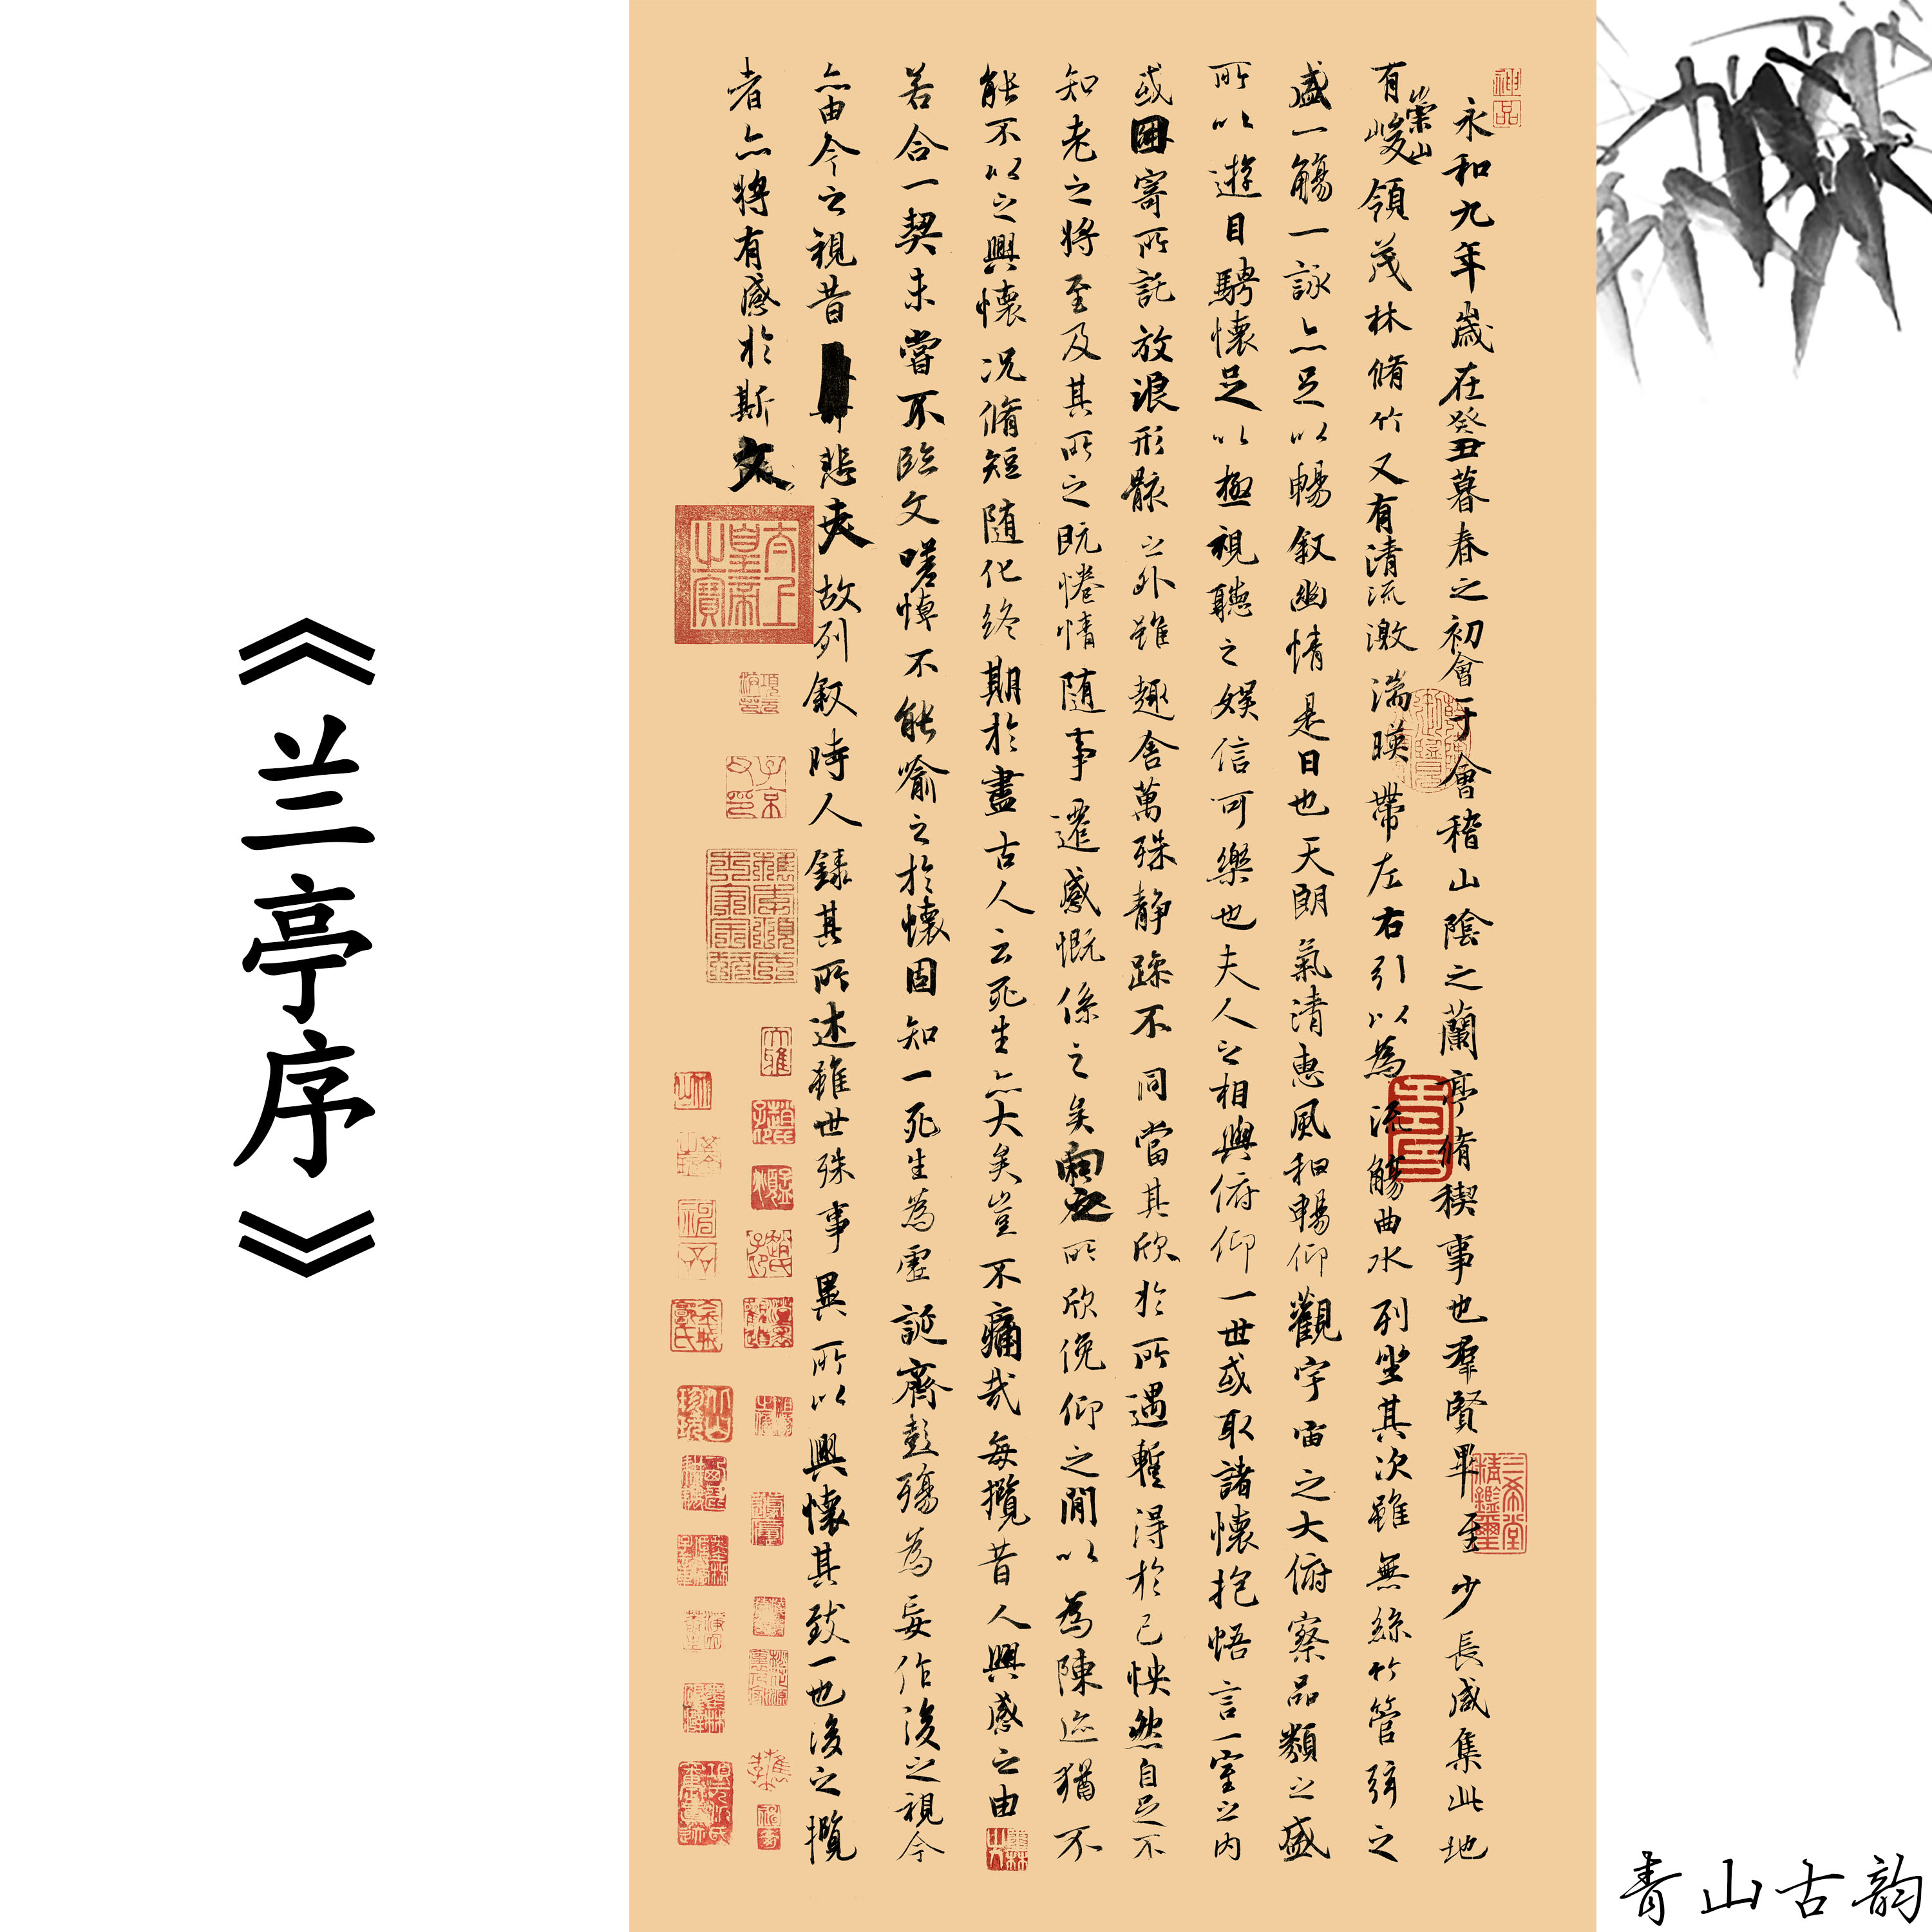 《兰亭序》
神品
永和九年歲在癸丑暮春之初會于會稽山陰之蘭亭脩稧事也群賢畢至少長咸集此地
有崇山峻領茂林脩竹又有清流激湍暎帶左右引以為流觴曲水列坐其次雖無絲竹管弦之
盛一觴一詠亦足以暢叙幽情是日也天朗氣清惠風和暢仰觀宇宙之大俯察品類之盛
所以遊目騁懷足以極視聽之娛信可樂也夫人之相與俯仰一世或取諸懷抱悟言一室之內
或因寄所託放浪形骸之外雖趣舍萬殊静躁不同當其欣於所遇暫得於己怏然自足不
知老之將至及其所之既惓情隨事遷感慨係之矣向之所欣俛仰之閒以為陳迹猶不
能不以之興懷況脩短隨化終期於盡古人云死生亦大矣豈不痛哉每攬昔人興感之由
若合一契未嘗不臨文嗟悼不能喻之於懷固知一死生為虛誕齊彭殤為妄作後之視今
亦由今之視昔悲夫故列叙時人錄其所述雖世殊事異所以興懷其致一也後之攬
者亦將有感於斯文
太上皇帝之寶
三希堂精鑑璽
青山古韵